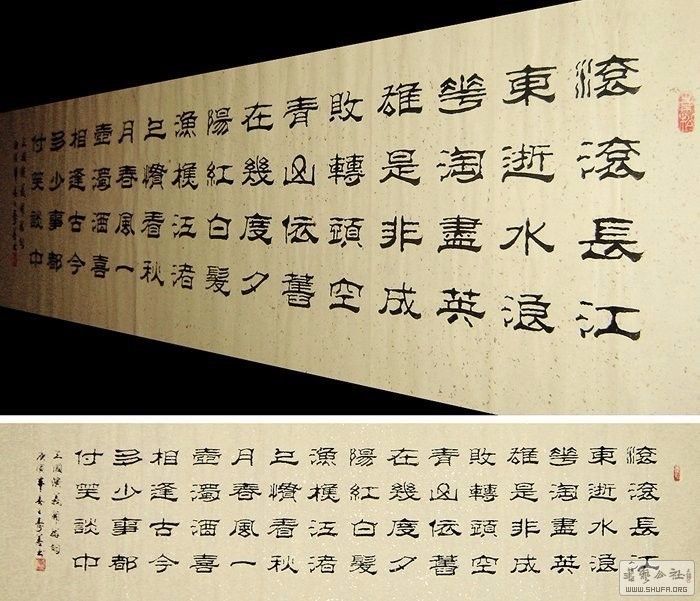 滾滾長江
東逝水浪
華淘盡英
雄是非成
敗轉頭空
青山依舊
在幾度夕
陽紅白髮
漁樵江渚
上慣看秋
月春風一
壺濁酒喜
相逢古今
多少事都
付笑談中
三國演義
滾滾長江
東逝水浪
華淘盡英
雄是非成
敗轉頭空
青山依舊
在幾度夕
陽紅白髮
漁樵江渚
上慣看秋
月春風一
壺濁酒喜
相逢古今
多少事都
付笑談中
三國演義
WWW.SHUFA.ORG